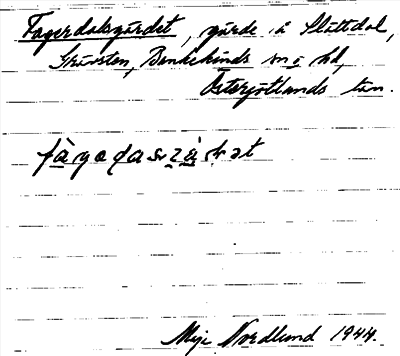 Fagerdalsgärdet, gärde i Slättdal,
Grävsten, Bankekinds sn o hd,
Östergötlands län.
Maj Nordlund 1944.